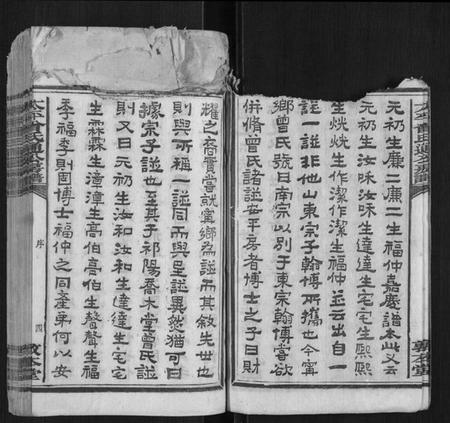 元初生廉二廉二生福仲嘉慶譜本此又云
元初生汝咏汝咏生達達生宅宅生熙熙
生烑烑生作潔作潔生福仲並云出自一
譜一非他山東宗子翰博所攜也今甯
鄉曾氏號曰南宗以別于東宗翰博嘗欲
併脩曾氏諸譜安平房者博士之子曰財
耀之裔實嘗就甯鄉為譜而其敘先世也
則與所稱一譜同而與是譜異然猶可曰
據宗子譜也至其于祁陽喬木堂曾氏譜
則又曰元初生汝和汝和生達達生宅宅
生霖霖生漳漳生高伯高伯生聲聲生福
季福季則固博士福仲之同產弟何以安
序
四
敦本堂